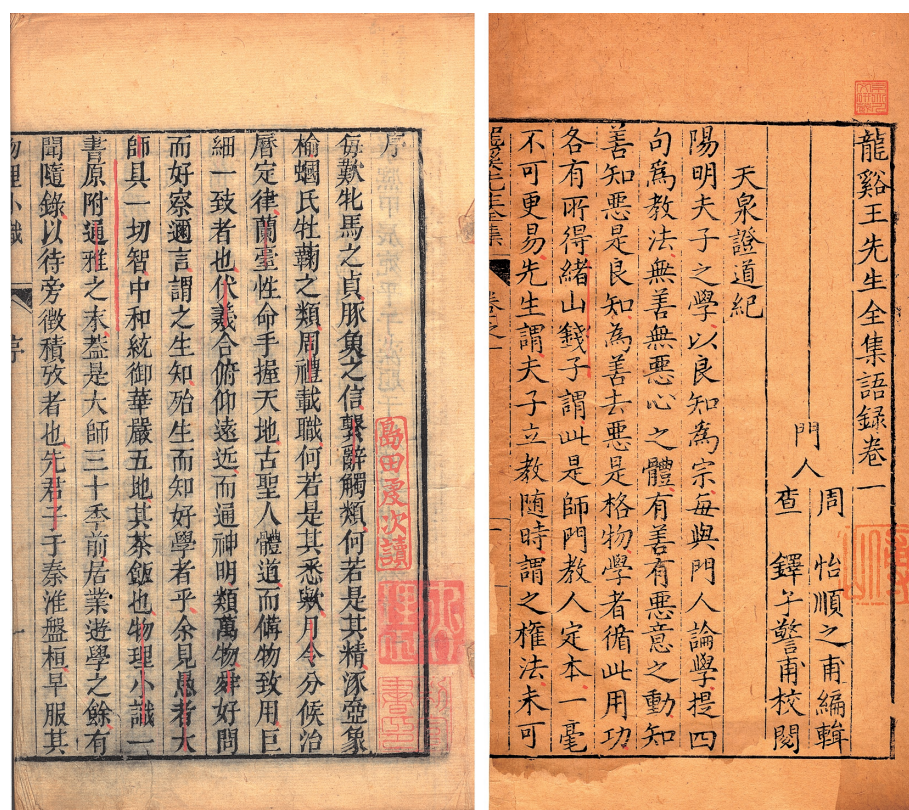 序
每歎牝馬之貞豚魚之信繫辭觸類何若是其精涿壺象
榆蟈氏牡蘜之類周禮載職何若是其悉歟月令分候治
曆定律蘭臺性命手握天地古聖人體道而備物致用巨
細一致者也伏羲合俯仰遠近而通神明類萬物舜好問
而好察邇言謂之生知殆生而知好學者乎余見愚者大
師具一切智中和統御華嚴五地其茶飯也物理小識一
書原附通雅之末葢是大師三十季前居業遊學之餘有
聞隨錄以待旁徵積攷者也先君子于秦淮盤桓早服其
物理小識 序 一
島田虔次讀
龍谿王先生全集語錄卷一
門人
周 怡順之甫編輯
查 鐸子警甫校閱
天泉證道紀
陽明夫子之學以良知為宗每與門人論學提四
句為教法無善無惡心之體有善有惡意之動知
善知惡是良知為善去惡是格物學者循此用功
各有所得緒山錢子謂此是師門教人定本一毫
不可更易先生謂夫子立教隨時謂之權法未可
龍谿先生全集 卷之一 一